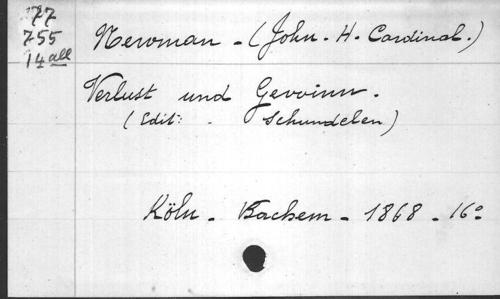 177
755
14 all
Newman - (John - H. Cardinal.)
Verlust und Gewinn.
(Edit: . Schundelen)
Köln - Bachem - 1868 - 16º